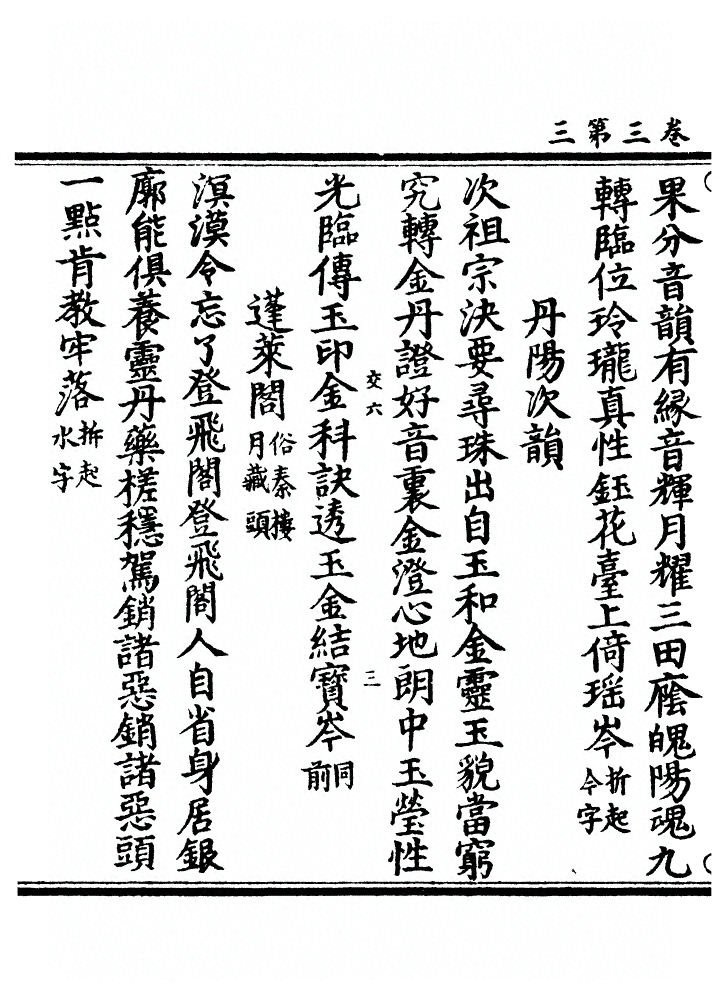 三第三卷
果分音韻有緣音輝月耀三田蔭魄陽魂九
轉臨位玲瓏真性鈺花臺上倚瑶岑折起今字
丹陽次韻
次祖宗決要尋珠出自玉和金靈玉貌當窮
究轉金丹證好音裏金澄心地朗中玉瑩性
交六
三
光臨傳玉印金科訣透玉金結寶岑同前
蓬萊閣俗秦樓月藏頭
溟漠令忘了登飛閣登飛閣人自省身居銀
廓能俱養靈丹藥槎穩駕銷諸惡銷諸惡頭
一點肯教牢落拆起水字